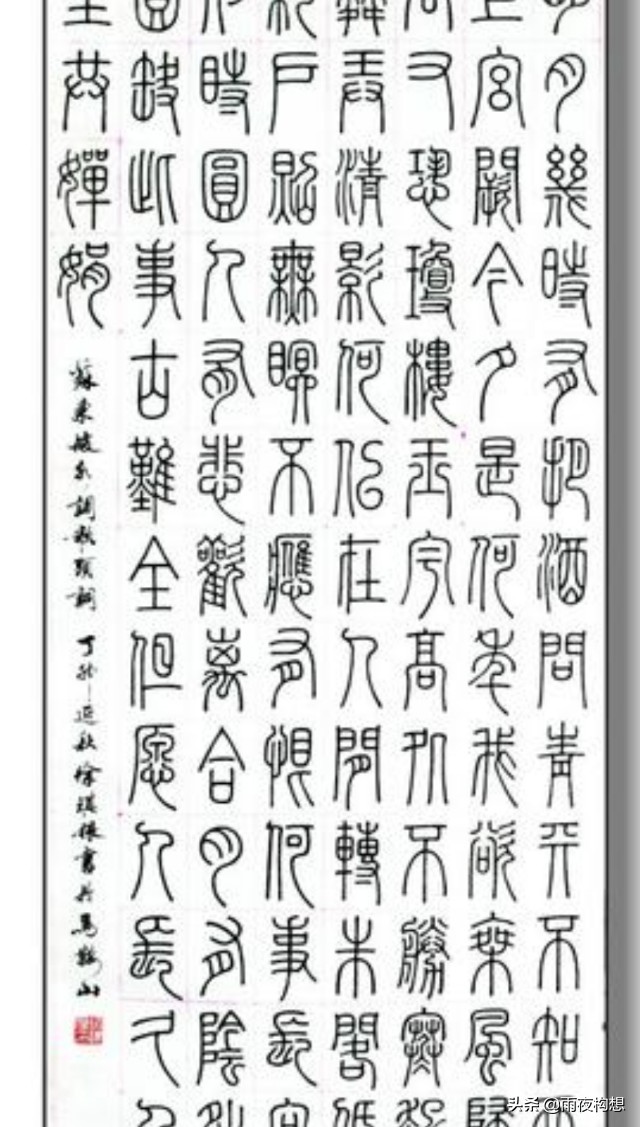 明月幾時有把酒問青天不知天
上宮闕今夕是何年我欲乘風歸
去又恐瓊樓玉宇高處不勝寒起
舞弄清影何似在人間轉朱閣低
綺戶照無眠不應有恨何事長向
別時圓人有悲歡離合月有陰晴
圓缺此事古難全但願人長久千
里共嬋娟
蘇東坡水調歌頭詞 丁酉 秋徐 書於馬鞍山
头条 @雨夜构想